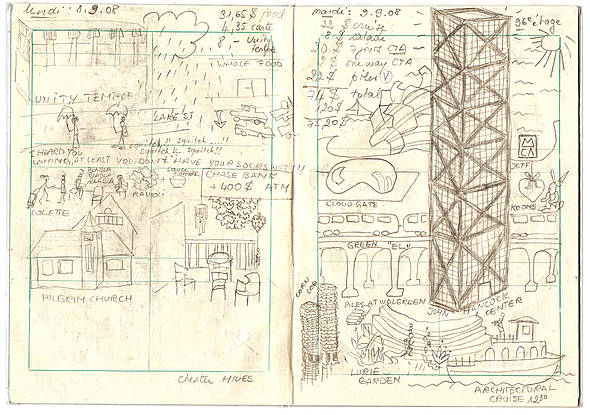 lundi : 8.9.08
31,65 $ food
4,35 carte
8 - Unity
temple
WHOLE FOOD
UNITY TEMPLE
LAKE ST
squitch !! squitch ...!!
squitch !.. squitch!!
I HEARD YOU
COMING, AT LEAST YOU DON'T HAVE YOUR SOCKS WET !!!
BLABLA
BLABLA
COLETTE
RAVIOLI
CHASE BANK
+ 400 $ ATM
PILGRIM CHURCH
Chester HIMES
mardi : 9.9.08
22 $
8 $ salade
20 $ 7 jours CTA
2 $ one way CTA
22 $ piles V
74 $ total
120 $
96e étage
MCA
JEFF
KOONS
CLOUD GATE
GREEN "EL"
CORN COB
PILES AT WALGREEN
JOHN HANCOCK
CENTER
LURIE
GARDEN
ARCHITECTURAL
CRUISE 12 30